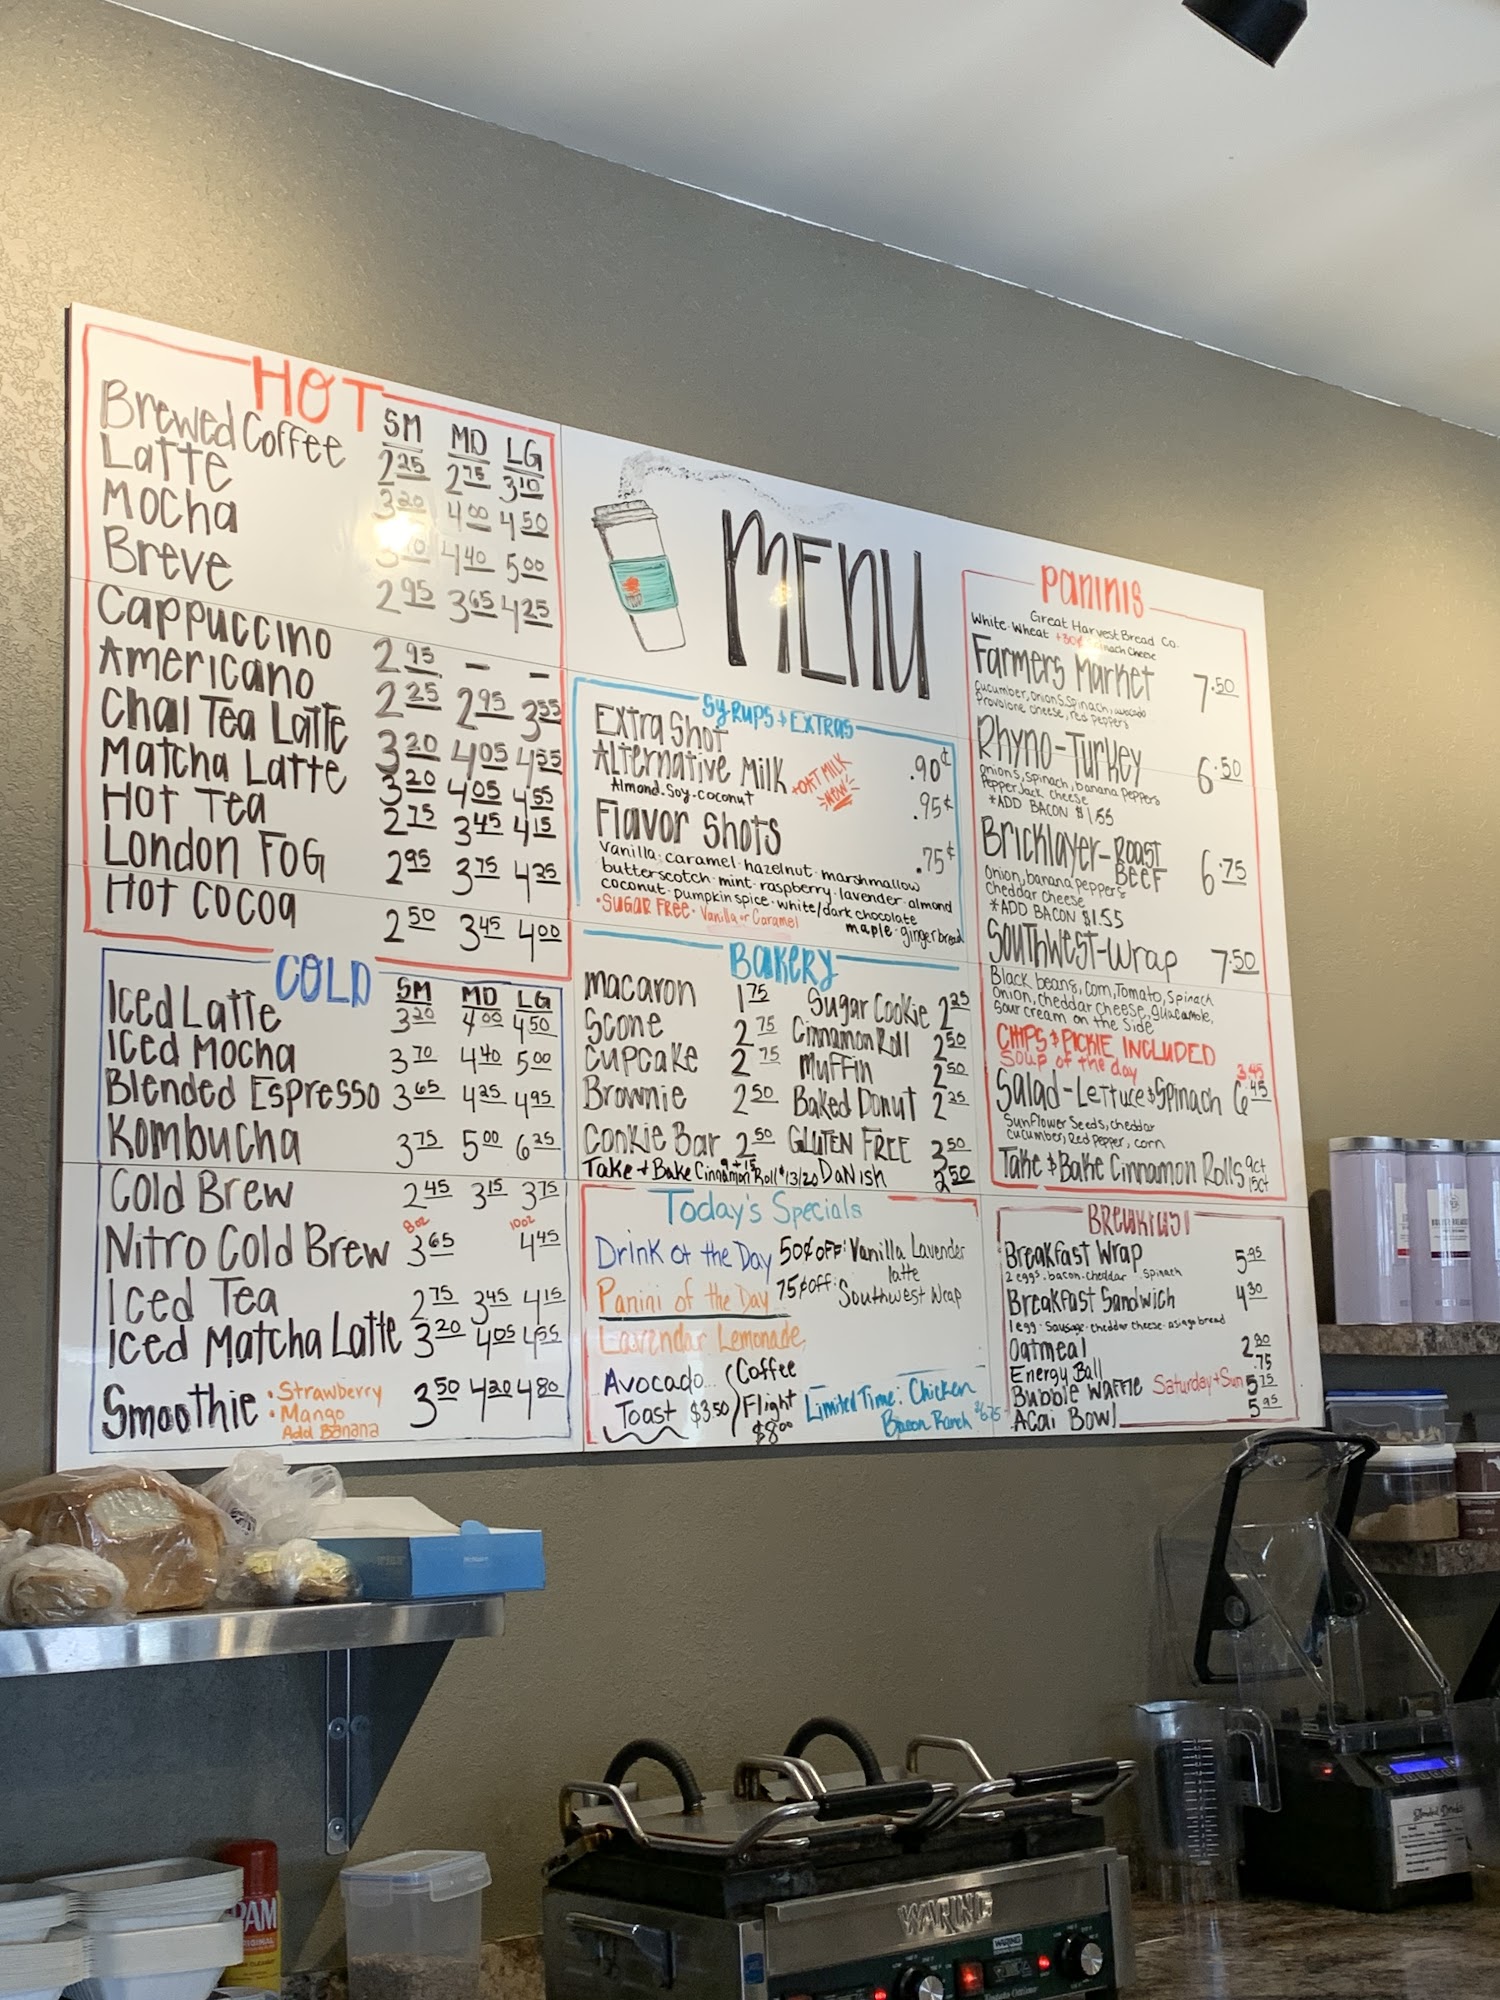 HOT
SM MD LG
Brewed Coffee 2.25 2.75 3.10
Latte 3.20 4.00 4.50
Mocha 4.40 5.00
Breve 2.95 3.65 4.25
Cappuccino 2.95 – –
Americano 2.25 2.95 3.55
Chai Tea Latte 3.20 4.05 4.55
Matcha Latte 3.20 4.05 4.55
Hot Tea 2.75 3.45 4.15
London Fog 2.95 3.75 4.25
Hot Cocoa 2.50 3.45 4.00
COLD
SM MD LG
Iced Latte 3.20 4.00 4.50
Iced Mocha 3.70 4.40 5.00
Blended Espresso 3.65 4.25 4.95
Kombucha 3.75 5.00 6.25
Cold Brew 2.45 3.15 3.75
8oz 10oz
Nitro Cold Brew 3.65 4.45
Iced Tea 2.75 3.45 4.15
Iced Matcha Latte 3.20 4.05 4.55
Smoothie 3.50 4.20 4.80
• Strawberry
• Mango
Add Banana
MENU
SYRUPS + EXTRAS
Extra Shot .90¢
Alternative Milk .95¢
+OAT MILK
NEW!
Almond. Soy. Coconut
Flavor Shots .75¢
Vanilla · caramel · hazelnut · marshmallow
butterscotch · mint · raspberry · lavender · almond
coconut · pumpkin spice · white/dark chocolate
maple · gingerbread
• SUGAR FREE • Vanilla or Caramel
BAKERY
Macaron 1.75
Scone 2.75
Cupcake 2.75
Brownie 2.50
Cookie Bar 2.50
Sugar Cookie 2.25
Cinnamon Roll 2.50
Muffin 2.50
Baked Donut 2.25
GLUTEN FREE 3.50
Danish 2.50
9 + 15
Take + Bake Cinnamon Roll $13/20
Today's Specials
Drink of the Day 50¢ OFF: Vanilla Lavender
latte
Panini of the Day 75¢ off: Southwest Wrap
Lavendar Lemonade
Avocado
Toast $3.50
Coffee
Flight
$8.00
Limited Time: Chicken
Bacon Ranch $6.75
PANINIS
Great Harvest Bread Co.
White · Wheat Spinach Cheese
Farmers Market 7.50
Cucumber, onions, spinach, avocado
Provolone cheese, red peppers
Rhyno-Turkey 6.50
onions, spinach, banana peppers
Pepper Jack cheese
*ADD BACON $1.55
Bricklayer-ROAST
BEEF 6.75
Onion, banana peppers
cheddar cheese
*ADD BACON $1.55
Southwest-Wrap 7.50
Black beans, Corn, Tomato, Spinach
Onion, cheddar cheese, guacamole,
Sour cream on the side
CHIPS & PICKLE INCLUDED
Soup of the day 3.45
Salad-Lettuce & Spinach 6.45
Sunflower Seeds, cheddar
cucumber, Red Pepper, corn
Take & Bake Cinnamon Rolls 9ct
15ct
BREAKFAST
Breakfast Wrap 5.95
2 eggs · bacon · cheddar · spinach
Breakfast Sandwich 4.30
1 egg · Sausage · cheddar cheese · asiago bread
Oatmeal 2.80
Energy Ball .75
Bubble Waffle Saturday + Sun 5.75
Acai Bowl 5.95
PAM
ORIGINAL
WARING
WARING